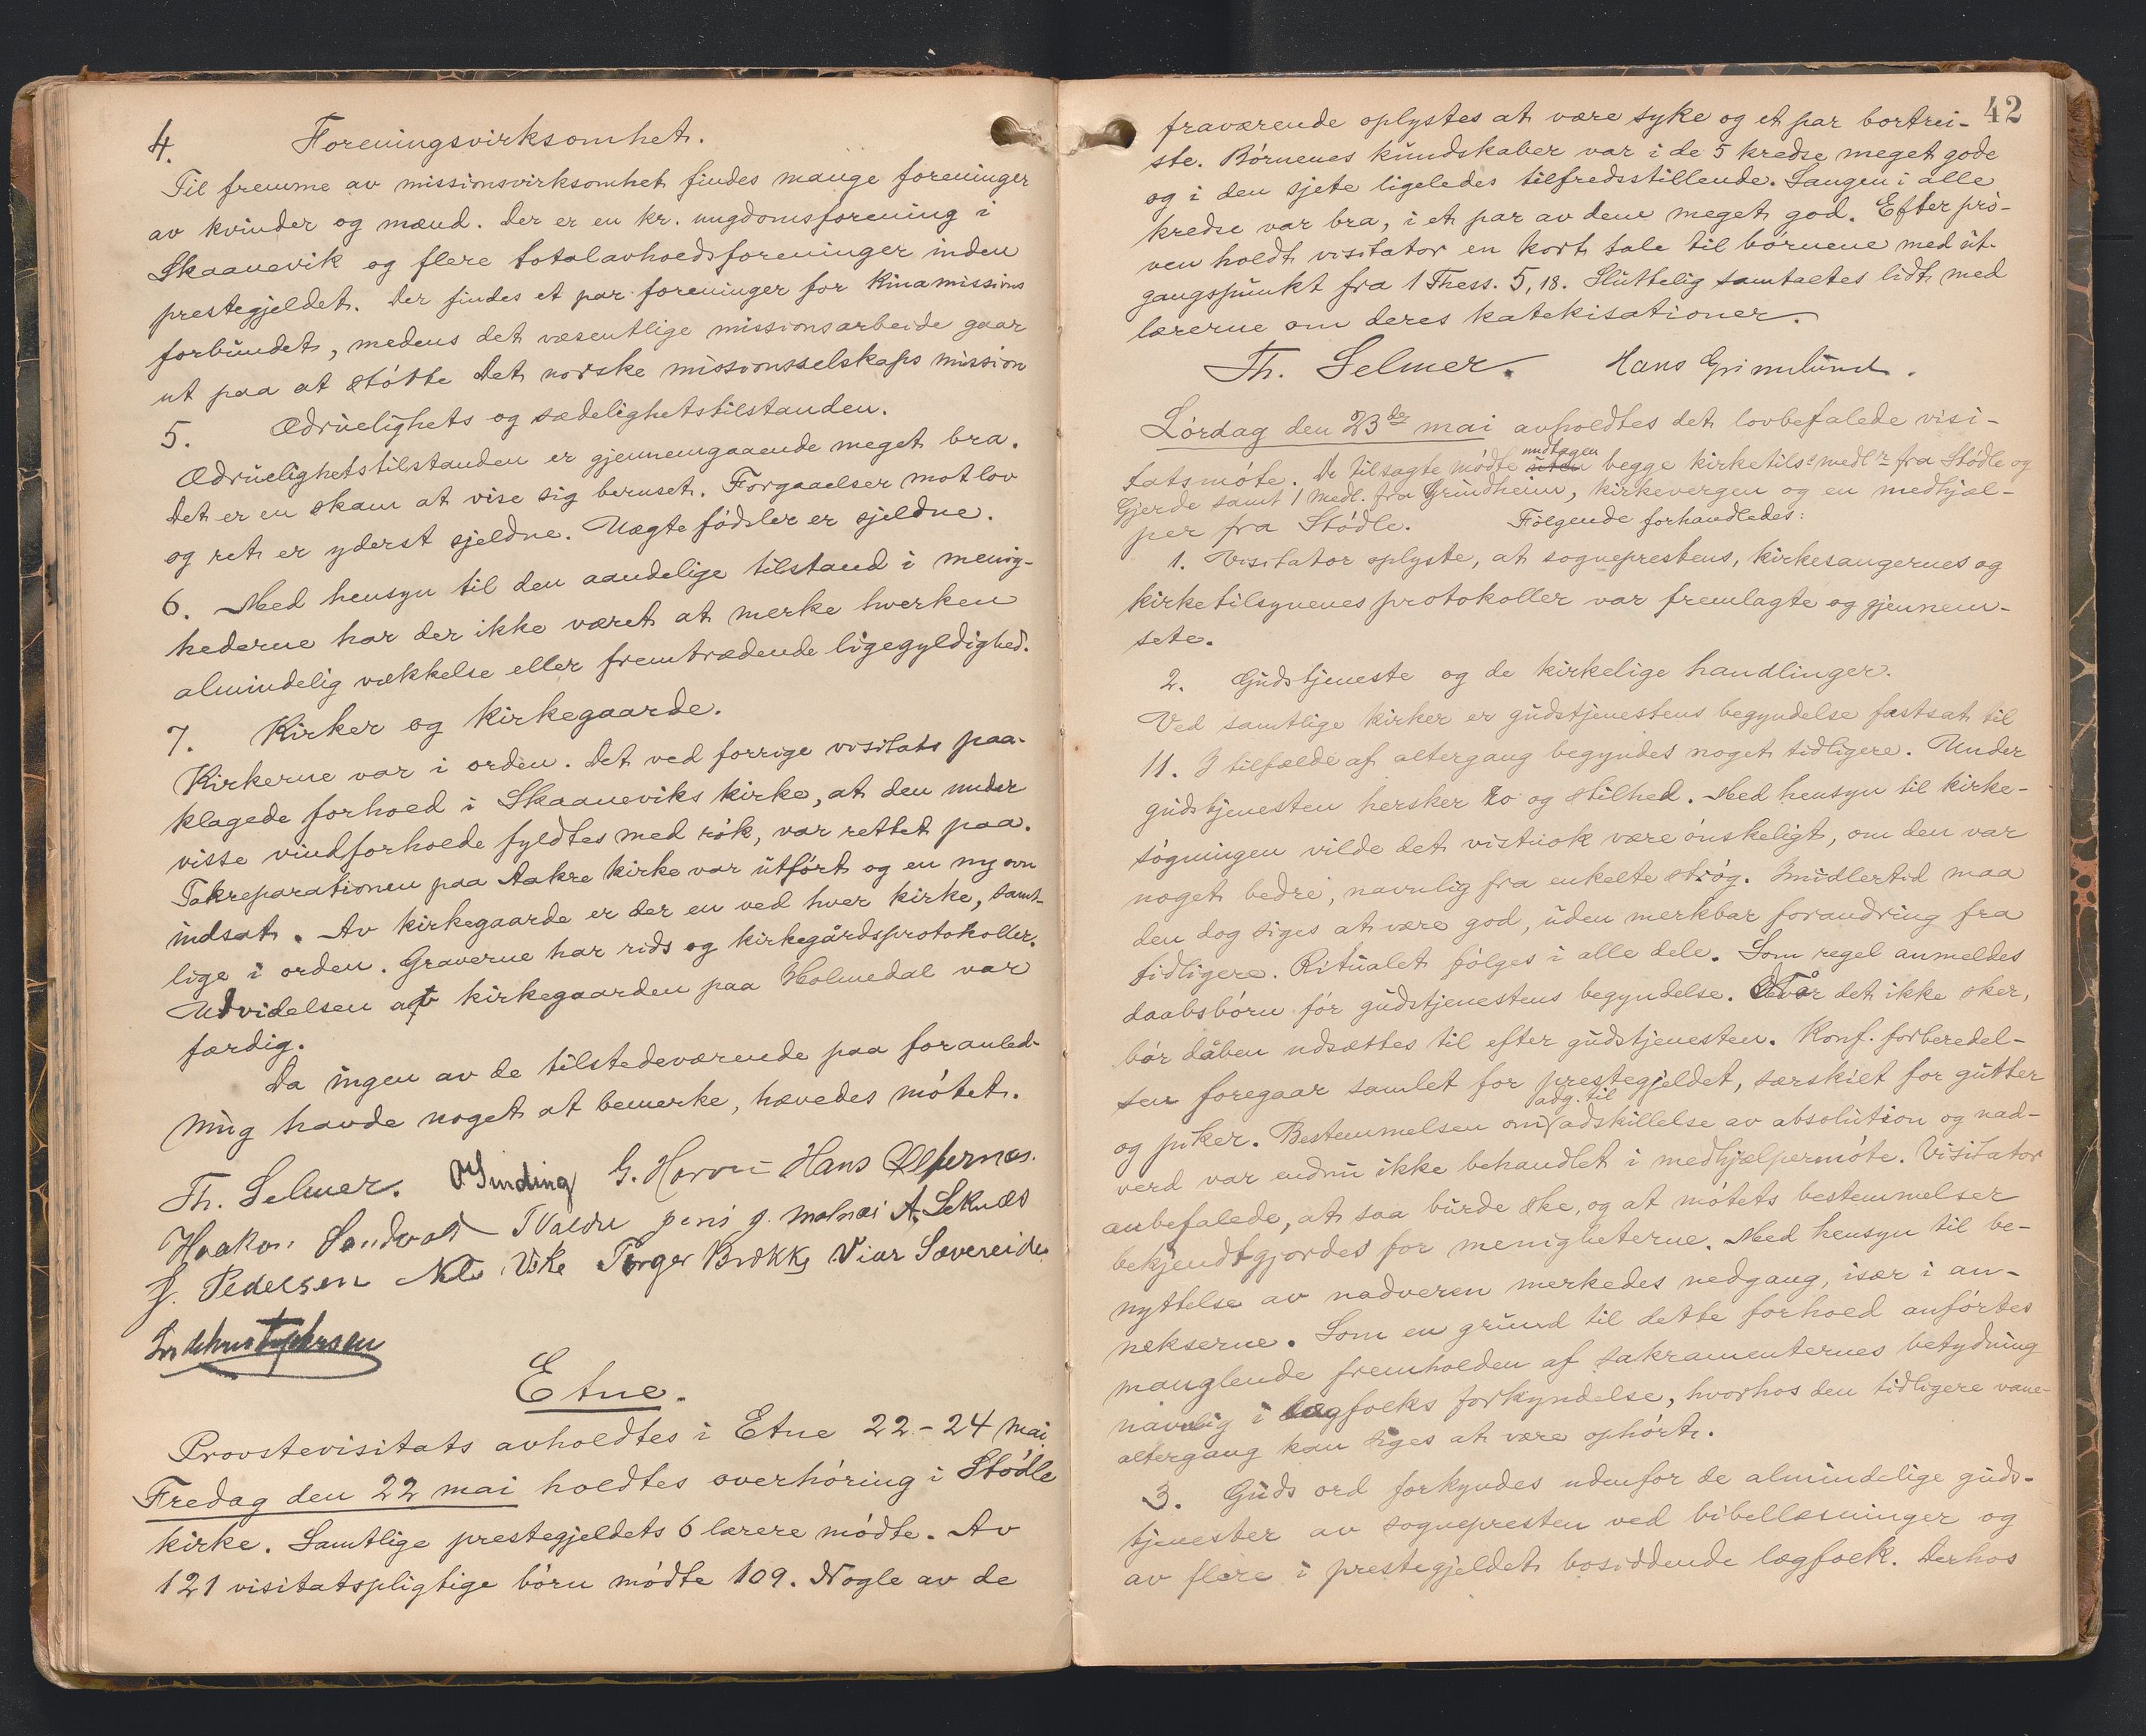 4. Foreningsvirksomhet.
Til fremme av missionsvirksomhet findes mange foreninger
av kvinder og mænd. Der er en kr. ungdomsforening i
Skaanevik og flere totalavholdsforeninger inden
prestegjeldet. Der findes et par foreninger for Kinamissions
forbundet, medens det væsentlige missionsarbeide gaar
ut paa at støtte Det norske missionsselskaps mission
5. Ædruelighets og sædelighetstilstanden.
Ædruelighetstilstanden er gjennemgaaende meget bra.
Det er en skam at vise sig beruset. Forgaaelser mot lov
og ret er yderst sjeldne. Uægte fødsler er sjeldne.
6. Med hensyn til den aandelige tilstand i menig-
hederne har der ikke været at merke hverken
almindelig vækkelse eller fremtrædende ligegyldighed.
7. Kirker og kirkegaarde.
Kirkerne var i orden. Det ved forrige visitats paa-
klagede forhold i Skaaneviks kirke, at den under
visse vindforholde fyldtes med røk, var rettet paa.
Takreparationen paa Aakre kirke var utført og en ny ovn
indsat. Av kirkegaarde er der en ved hver kirke, samt-
lige i orden. Graverne har rids og kirkegårdsprotokoller.
Udvidelsen av kirkegaarden paa Holmedal var
færdig.
Da ingen av de tilstedeværende paa foranled-
ning havde noget at bemerke, hævedes møtet.
Th. Selmer. O Sinding G. Hans
Haakon Sandvad J. A. Leknæs
J. Pedersen Nils Vike Torger Brekke Vier Sævereide
Etne.
Provstevisitats avholdtes i Etne 22-24 mai
Fredag den 22 mai holdtes overhøring i Stødle
kirke. Samtlige prestegjeldets 6 lærere mødte. Av
121 visitatspligtige børn mødte 109. Nogle av de
42
fraværende oplystes at være syke og et par bortrei-
ste. Børnenes kundskaber var i de 5 kredse meget gode
og i den sjete ligeledes tilfredsstillende. Sangen i alle
kredse var bra, i et par av dem meget god. Efter prø-
ven holdt visitator en kort tale til børnene med ut-
gangspunkt fra 1 Thess. 5, 18. Sluttelig samtaltes lidt med
lærerne om deres katekisationer.
Th. Selmer. Hans Grimelund.
Lørdag den 23de mai avholdtes det lovbefalede visi-
tatsmøte. De tilsagte mødte undtagen begge kirketils. medlr fra Stødle og
Gjerde samt 1 medl. fra Grindheim, kirkevergen og en medhjæl-
per fra Stødle. Følgende forhandledes:
1. Visitator oplyste, at sogneprestens, kirkesangernes og
kirketilsynenes protokoller var fremlagte og gjennem-
sete.
2. Gudstjeneste og de kirkelige handlinger.
Ved samtlige kirker er gudstjenestens begyndelse fastsat til
11. I tilfælde af altergang begyndes noget tidligere. Under
gudstjenesten hersker ro og stilhed. Med hensyn til kirke-
søgningen vilde det vistnok være ønskeligt, om den var
noget bedre, navnlig fra enkelte strøg. Imidlertid maa
den dog siges at være god, uden merkbar forandring fra
tidligere. Ritualet følges i alle dele. Som regel anmeldes
daabsbørn før gudstjenestens begyndelse. Når det ikke sker,
bør dåben udsættes til efter gudstjenesten. Konf. forberedel-
sen foregaar samlet for prestegjeldet, særskilt for gutter
og piker. Bestemmelsen om adg. til adskillelse av absolution og nad-
verd var endnu ikke behandlet i medhjælpermøte. Visitator
anbefalede, at saa burde ske, og at møtets bestemmelser
bekjendtgjordes for menigheterne. Med hensyn til be-
nyttelse av nadveren merkedes nedgang, især i an-
nekserne. Som en grund til dette forhold anførtes
manglende fremholden af sakramenternes betydning
navnlig i lægfolks forkyndelse, hvorhos den tidligere vane-
altergang kan siges at være ophørt.
3. Guds ord forkyndes udenfor de almindelige guds-
tjenester av sognepresten ved bibellæsninger og
av flere i prestegjeldet bosiddende lægfolk. Derhos